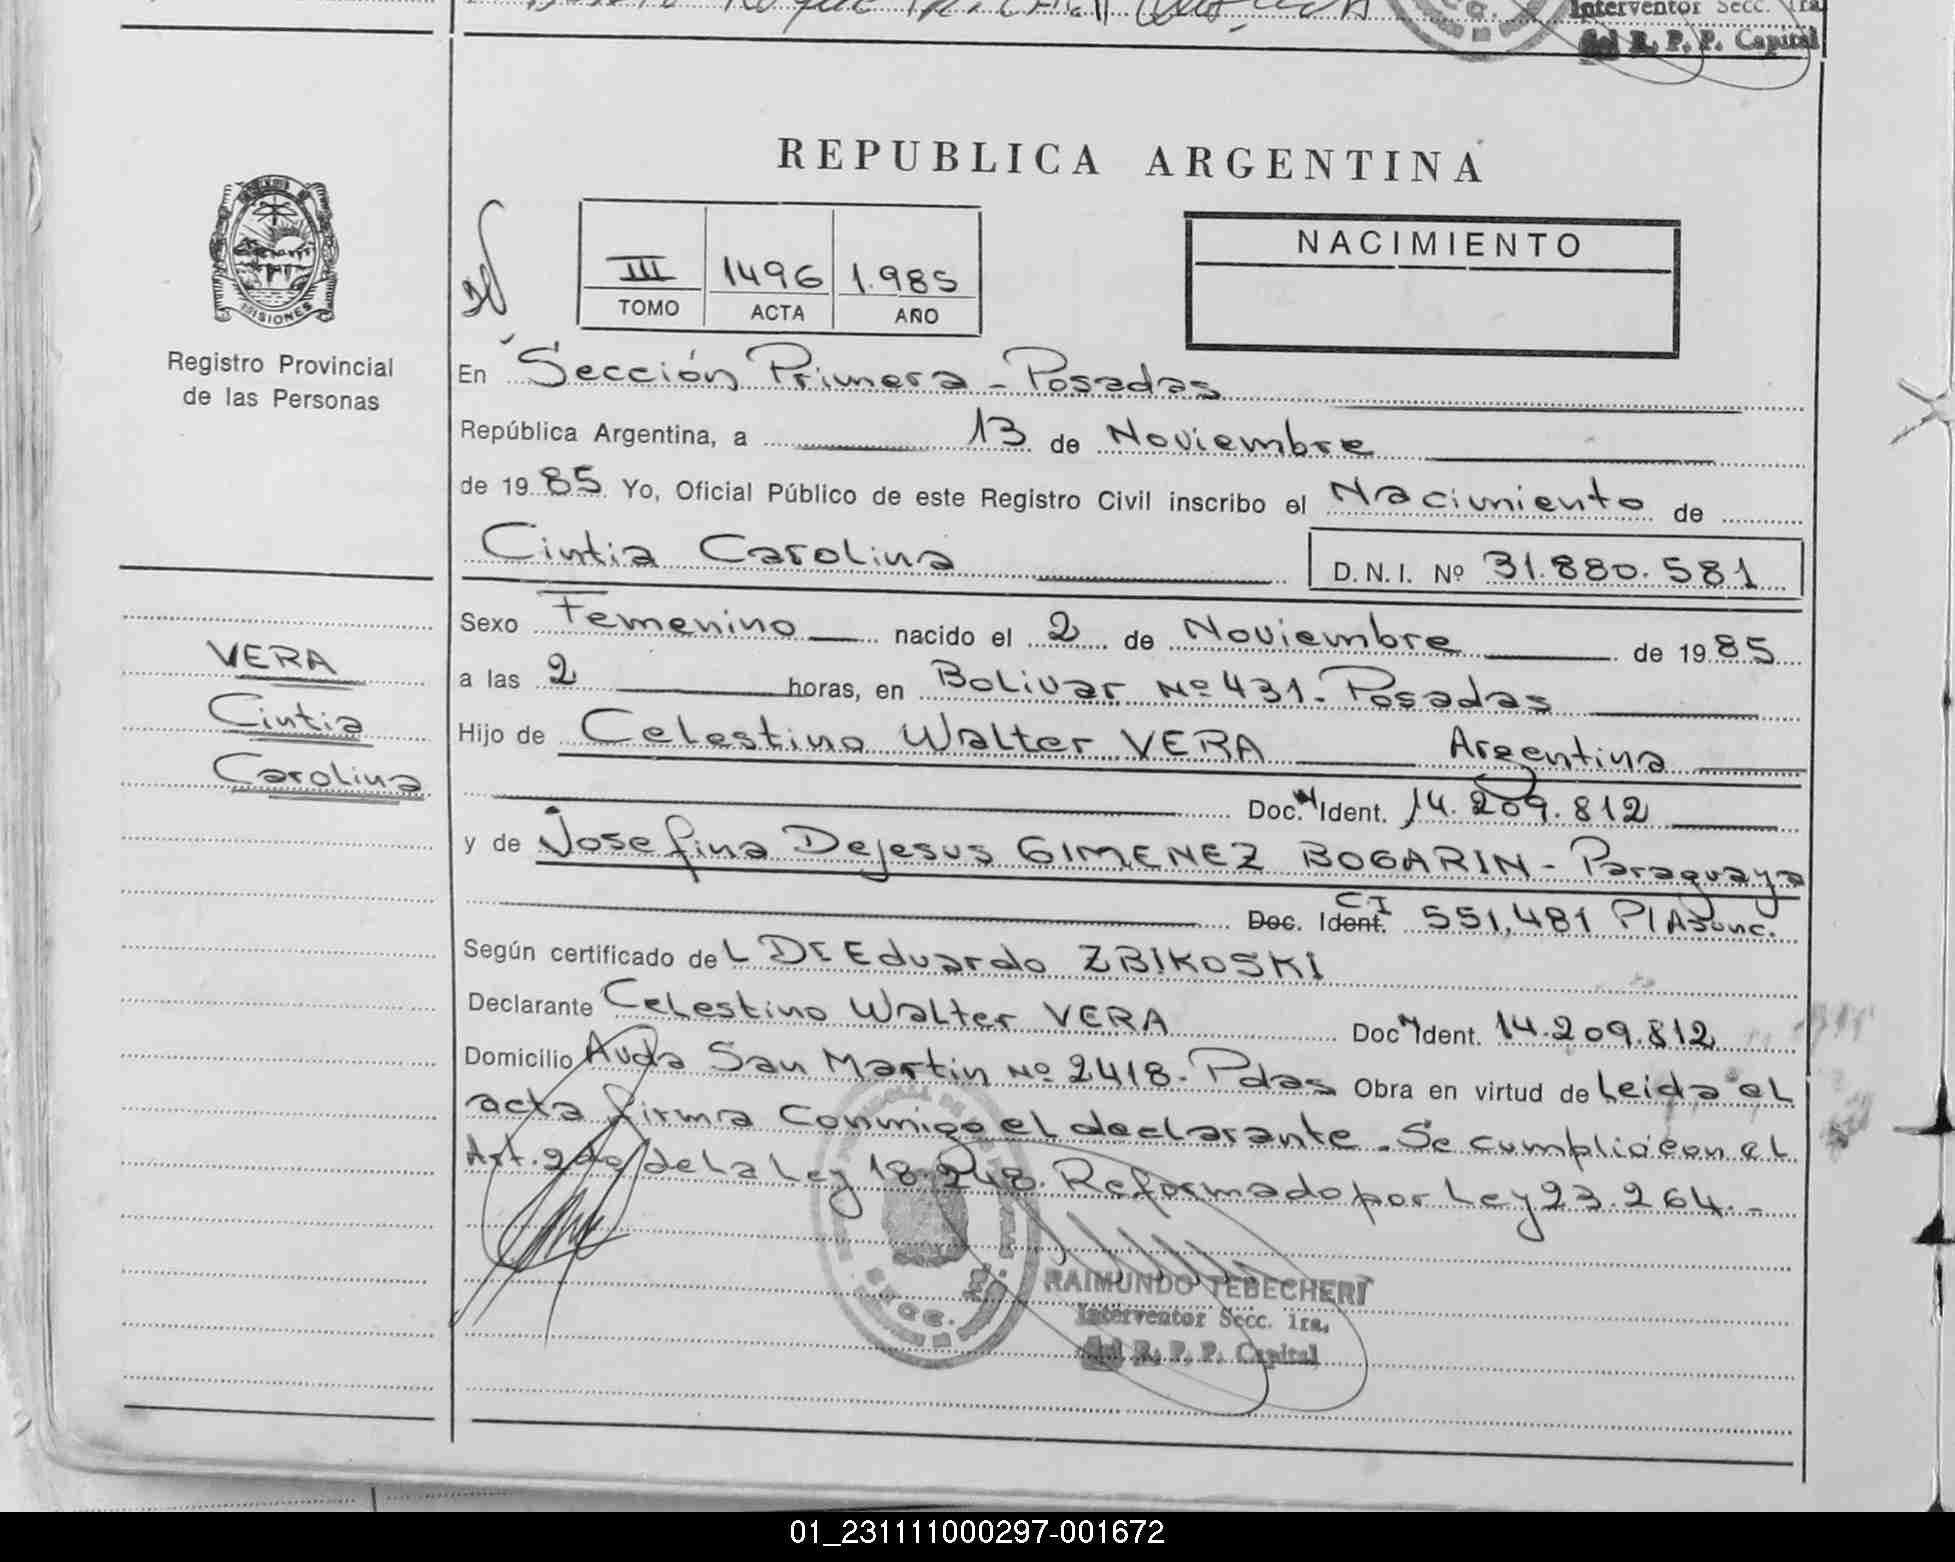 Interventor Secc. 1ra
del R. P. P. Capital
REPUBLICA ARGENTINA
MISIONES
Registro Provincial
de las Personas
III 1496 1.985
TOMO ACTA AÑO
NACIMIENTO
En Sección Primera - Posadas
República Argentina, a 13 de Noviembre
de 1985 Yo, Oficial Público de este Registro Civil inscribo el Nacimiento de
Cintia Carolina D.N.I. Nº 31.880.581
Sexo Femenino nacido el 2 de Noviembre de 1985
VERA
Cintia
Carolina
a las 2 horas, en Bolivar Nº 431 - Posadas
Hijo de Celestino Walter VERA Argentina
Doc. N Ident. 14.209.812
y de Josefina Dejesus GIMENEZ BOGARIN - Paraguaya
Doc. Ident. CI 551,481 P/Asunc.
Según certificado del Dr Eduardo ZBIKOSKI
Declarante Celestino Walter VERA Doc N Ident. 14.209.812
Domicilio Avda San Martin Nº 2418 - Pdas Obra en virtud de Leida el
acta firma Conmigo el declarante - Se cumplió con el
Art. 2do de La Ley 18.248. Reformado por Ley 23.264.-
RAIMUNDO TEBECHERI
Interventor Secc. 1ra.
del R. P. P. Capital
01_231111000297-001672